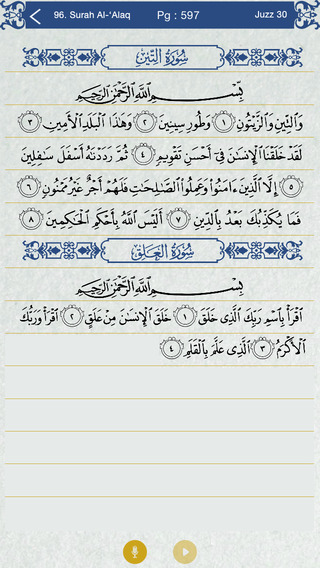 96. Surah Al-'Alaq Pg : 597 Juzz 30
سُورَةُ التِّينِ
بِسْمِ اللَّهِ الرَّحْمَٰنِ الرَّحِيمِ
وَالتِّينِ وَالزَّيْتُونِ ١ وَطُورِ سِينِينَ ٢ وَهَٰذَا الْبَلَدِ الْأَمِينِ ٣
لَقَدْ خَلَقْنَا الْإِنسَٰنَ فِىٓ أَحْسَنِ تَقْوِيمٍ ٤ ثُمَّ رَدَدْنَٰهُ أَسْفَلَ سَٰفِلِينَ
٥ إِلَّا الَّذِينَ ءَامَنُوا وَعَمِلُوا الصَّٰلِحَٰتِ فَلَهُمْ أَجْرٌ غَيْرُ مَمْنُونٍ ٦
فَمَا يُكَذِّبُكَ بَعْدُ بِالدِّينِ ٧ أَلَيْسَ اللَّهُ بِأَحْكَمِ الْحَٰكِمِينَ ٨
سُورَةُ الْعَلَقِ
بِسْمِ اللَّهِ الرَّحْمَٰنِ الرَّحِيمِ
اقْرَأْ بِاسْمِ رَبِّكَ الَّذِى خَلَقَ ١ خَلَقَ الْإِنسَٰنَ مِنْ عَلَقٍ ٢ اقْرَأْ وَرَبُّكَ
الْأَكْرَمُ ٣ الَّذِى عَلَّمَ بِالْقَلَمِ ٤